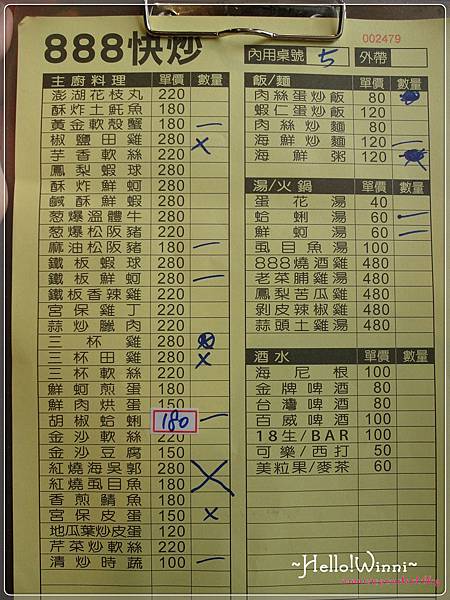 888快炒
002479
內用桌號 5 外帶
主廚料理 單價 數量
澎湖花枝丸 220
酥炸土魠魚 180
黃金軟殼蟹 180
椒鹽田雞 280
芋香軟絲 220
鳳梨蝦球 280
酥炸鮮蚵 280
鹹酥鮮蝦 280
葱爆溫體牛 280
葱爆松阪豬 220
麻油松阪豬 180
鐵板蝦球 280
鐵板鮮蚵 280
鐵板香辣雞 220
宮保雞丁 220
蒜炒臘肉 220
三杯雞 280
三杯田雞 280
三杯軟絲 220
鮮蚵煎蛋 180
鮮肉烘蛋 150
胡椒蛤蜊 180
金沙軟絲 220
金沙豆腐 150
紅燒海吳郭 280
紅燒虱目魚 180
香煎鯖魚 180
宮保皮蛋 150
地瓜葉炒皮蛋 120
芹菜炒軟絲 220
清炒時蔬 100
飯/麵 單價 數量
肉絲蛋炒飯 80
蝦仁蛋炒飯 120
肉絲炒麵 80
海鮮炒麵 120
海鮮粥 120
湯/火鍋 單價 數量
蛋花湯 40
蛤蜊湯 60
鮮蚵湯 60
虱目魚湯 100
888燒酒雞 480
老菜脯雞湯 480
鳳梨苦瓜雞 480
剝皮辣椒雞 480
蒜頭土雞湯 480
酒水 單價 數量
海尼根 100
金牌啤酒 80
台灣啤酒 80
百威啤酒 100
18生/BAR 100
可樂/西打 50
美粒果/麥茶 60
~Hello!Winni~